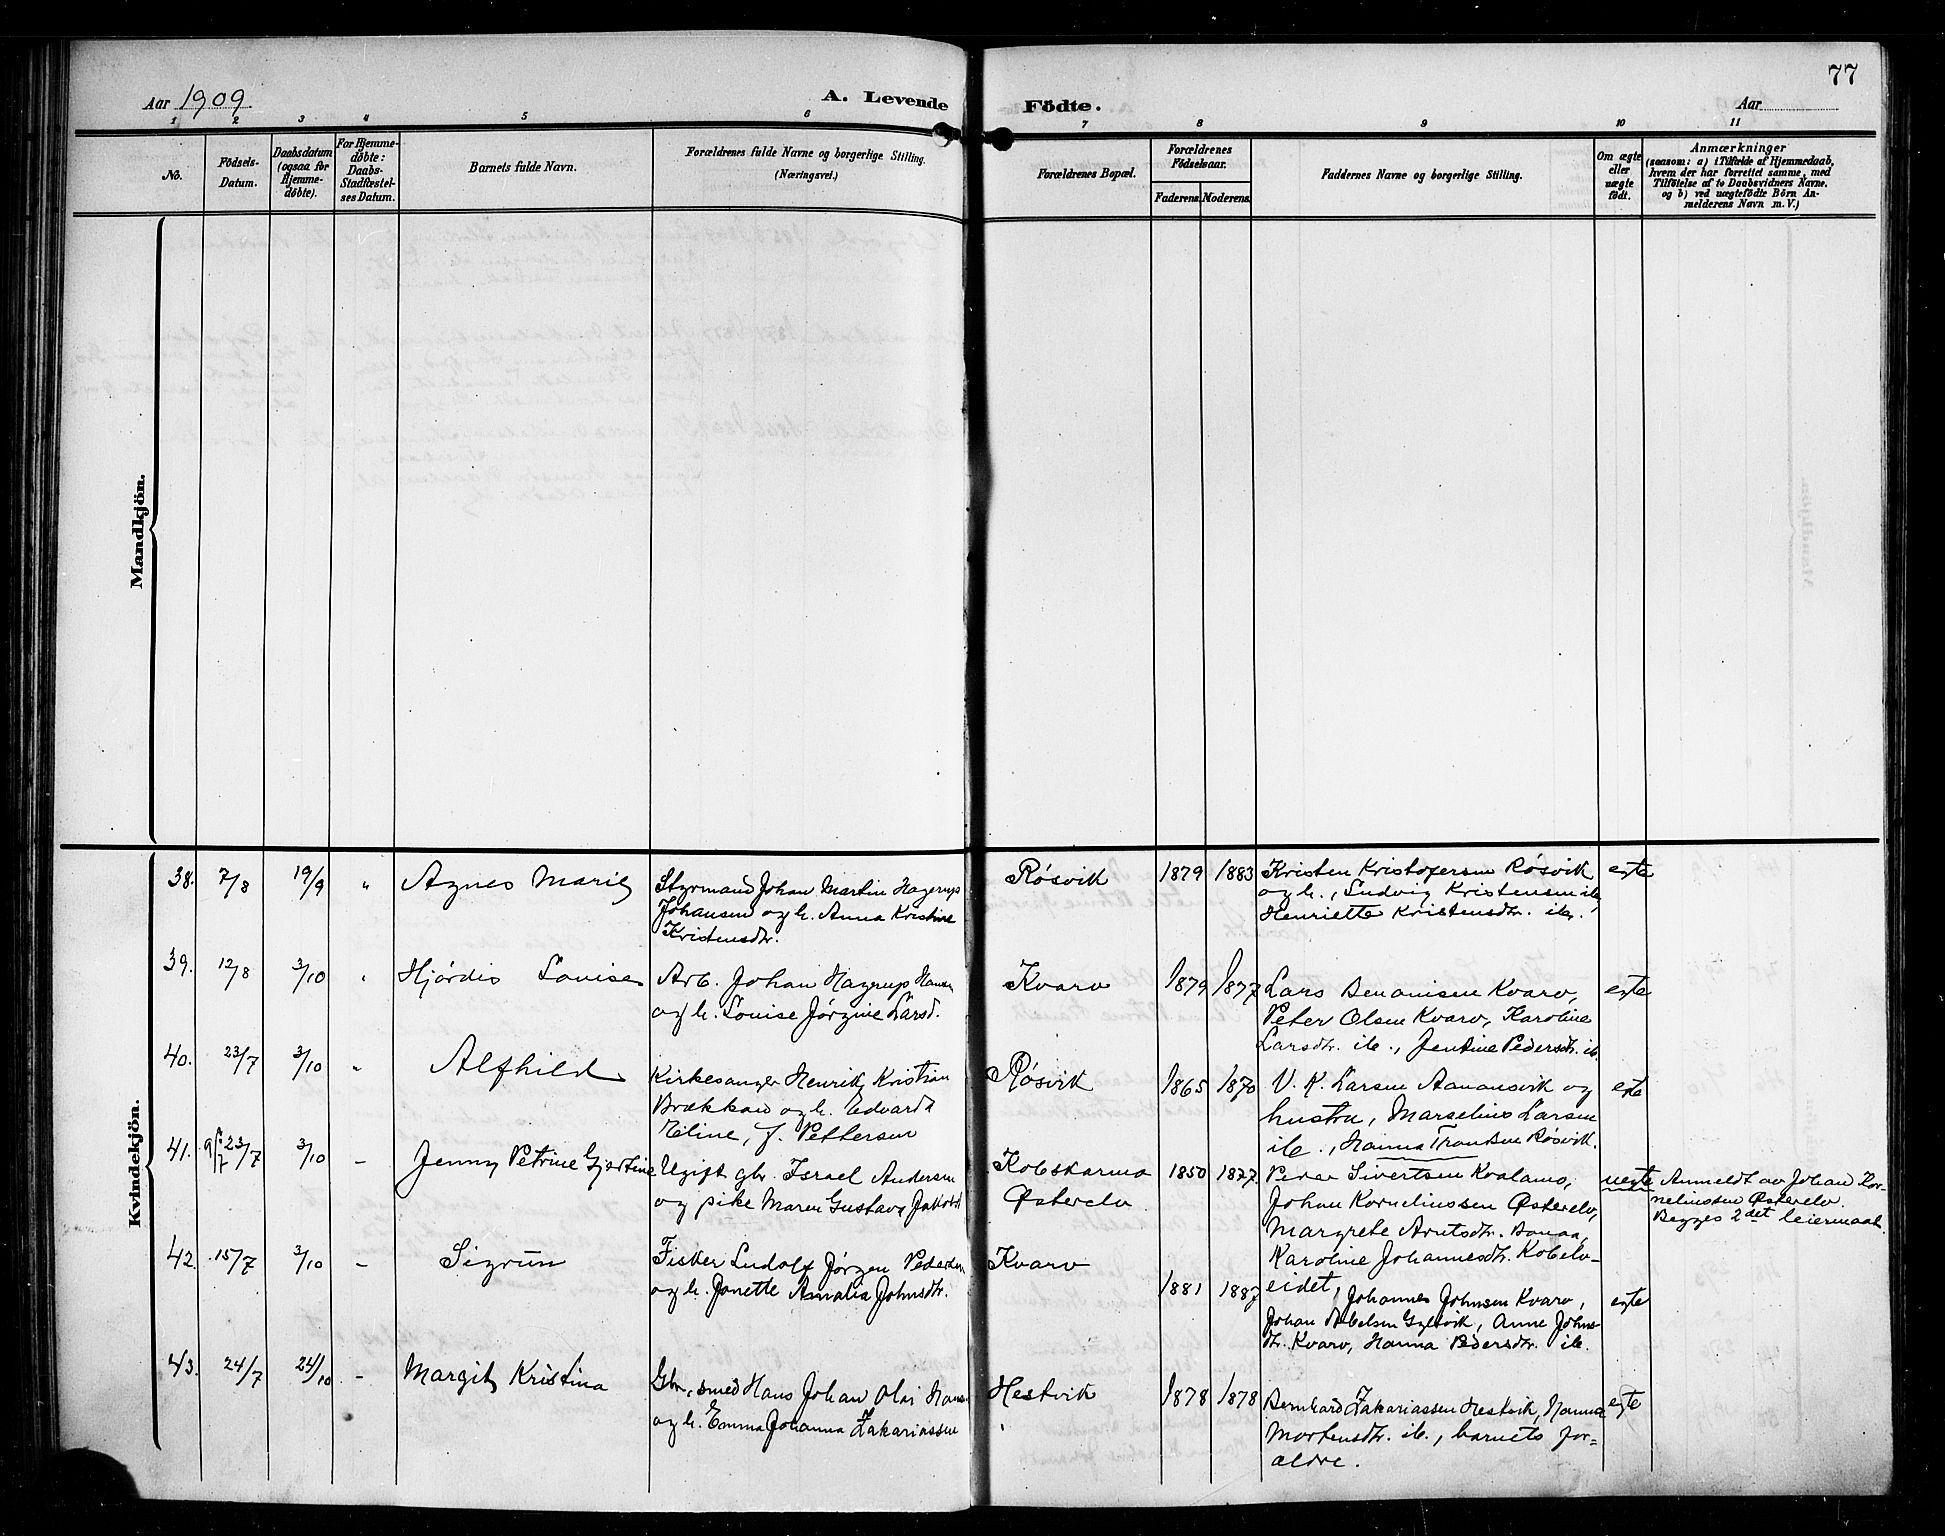 77
Aar 1909.
A. Levende Födte.
Aar
1 2 3 4 5 6 7 8 9 10 11
No.
Födsels-
Datum.
Daabsdatum
(ogsaa for
Hjemme-
döbte).
For Hjemme-
döbte:
Daabs-
Stadfæstel-
ses Datum.
Barnets fulde Navn.
Forældrenes fulde Navne og borgerlige Stilling.
(Næringsvei.)
Forældrenes Bopæl.
Forældrenes
Födselsaar.
Faderens. Moderens.
Faddernes Navne og borgerlige Stilling.
Om ægte
eller
uægte
födt.
Anmærkninger
(saasom: a) i Tilfælde af Hjemmedaab,
hvem der har forrettet samme, med
Tilföielse af to Daabsvidners Navne.
og b) ved uægtefödte Börn An-
melderens Navn m. V.)
Mandkjön.
Kvindekjön.
38. 7/8 19/9 " Agnes Marie
Styrmand Johan Martin Hagerup
Johansen og h. Anna Kristine
Kristensdtr.
Røsvik 1879 1883
Kristen Kristofersen Røsvik
og h., Ludvig Kristensen ib.,
Henriette Kristensdtr. ib.
egte
39. 12/8 3/10 " Hjørdis Louise
Arb. Johan Hagerup Hansen
og h. Louise Jørgine Larsd.
Kvarv 1879 1877
Lars Benonisen Kvarv,
Peter Olsen Kvarv, Karoline
Larsdtr. ib., Jentine Pedersdtr. ib.
egte
40. 23/7 3/10 " Alfhild
Kirkesanger Henrik Kristian
Brækkan og h. Edvarda
Eline, f. Pettersen
Røsvik 1865 1870
V. K. Larsen Aanonsvik og
hustru, Marselius Larsen
ib., Hanna Trondsen Røsvik.
egte
41. 23/7 3/10 - Jenny Petrine Gjertine
Ugift gbr. Israel Andersen
og pike Maren Gustava Jakobsd.
Kobskarmo
Østerelv
1850 1877.
Peder Sivertsen Kvalamo,
Johan Kornelinssen Østerelv,
Margrete Arntsdtr. Bonaa,
Karoline Johannesdtr. Kobelv-
eidet,
uegte
Anmeldt av Johan Kor-
nelinssen Østerelv.
Begges 2det leiermaal.
42. 15/7 3/10 - Sigrun
Fisker Ludolf Jørgen Pedersen
og h. Janette Amalia Johnsdtr.
Kvarv 1881 1887
Johannes Johnsen Kvarv,
Johan Abelsen Gyltvik, Anne Johns-
dtr. Kvarv, Hanna Pedersdtr. ib.
egte
43. 24/7 24/10 - Margit Kristina
Gbr., smed Hans Johan Olai Hans.
og h. Emma Johanna Zakariassen
Hestvik 1878 1878
Bernhard Zakariassen Hestvik, Hanna
Mortensdtr. ib., barnets for=
ældre.
egte